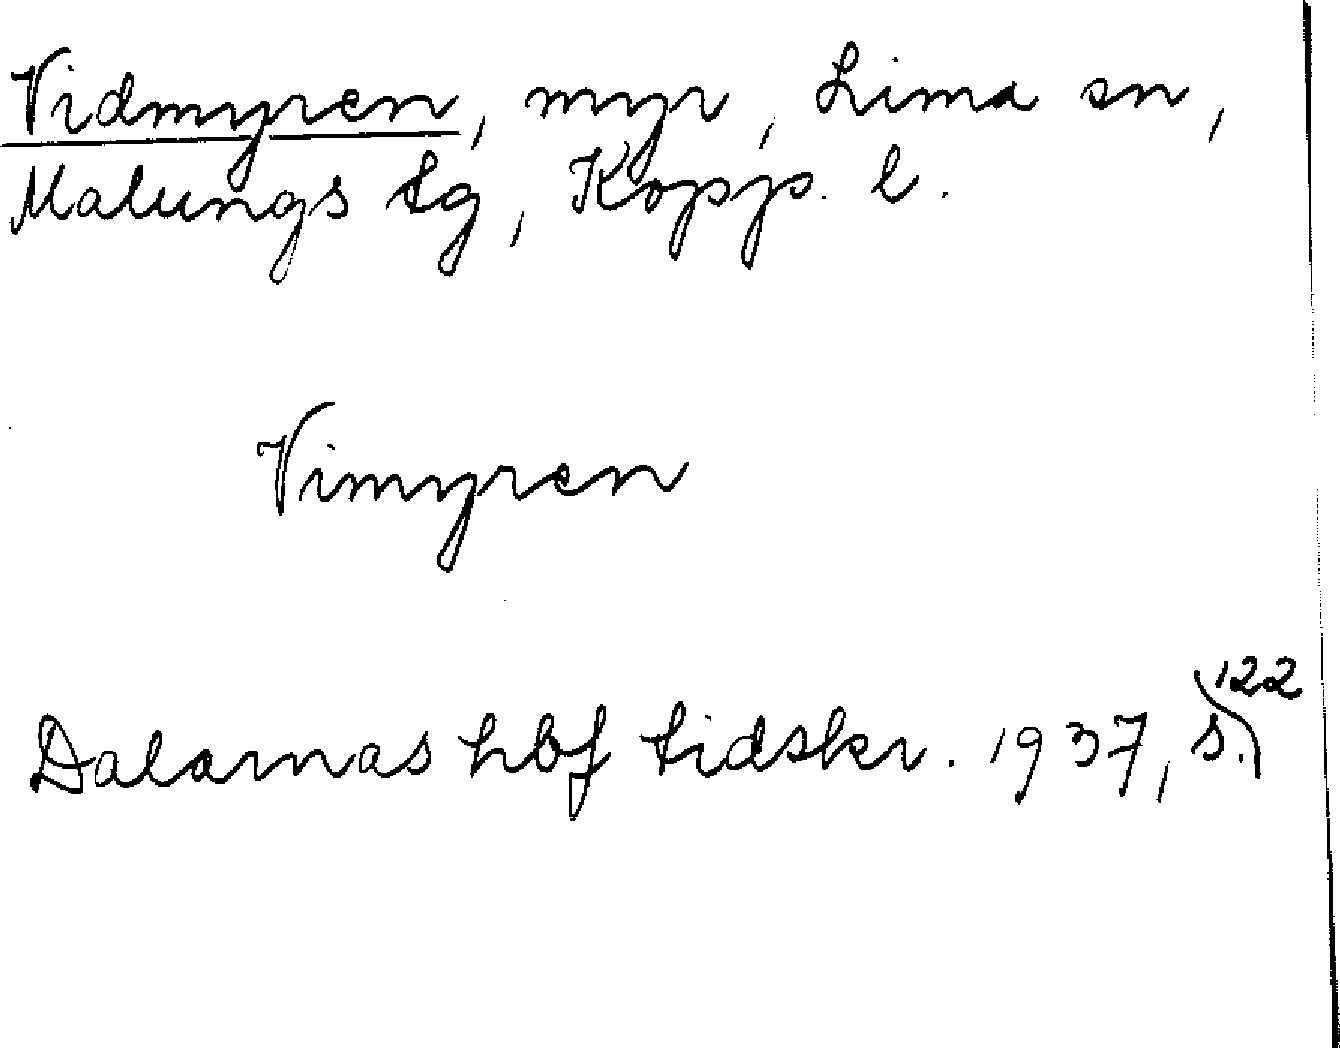 Vidmyren, myr, Lima sn,
Malungs tg, Kopp. l.
Vimyren
Dalarnas hbf tidskr. 1937, s. 122